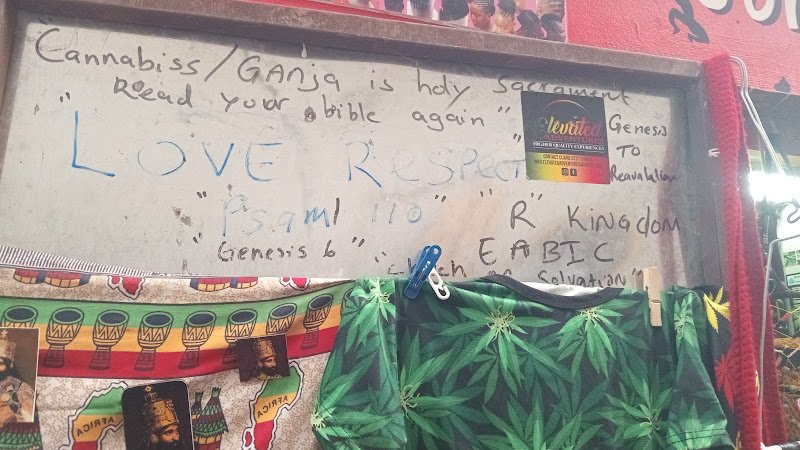 Cannabiss/GANja is holy Sacrament
Read your bible again"
"LOVE RESPECT
"Genesis
TO
Reavalation
Elevated
ADVENTURES
HIGHER QUALITY EXPERIENCES
"Psaml 110"
"R" KINGDOM
"Genesis 6"
"EABIC
Solvation"
AFRICA
AFRICA